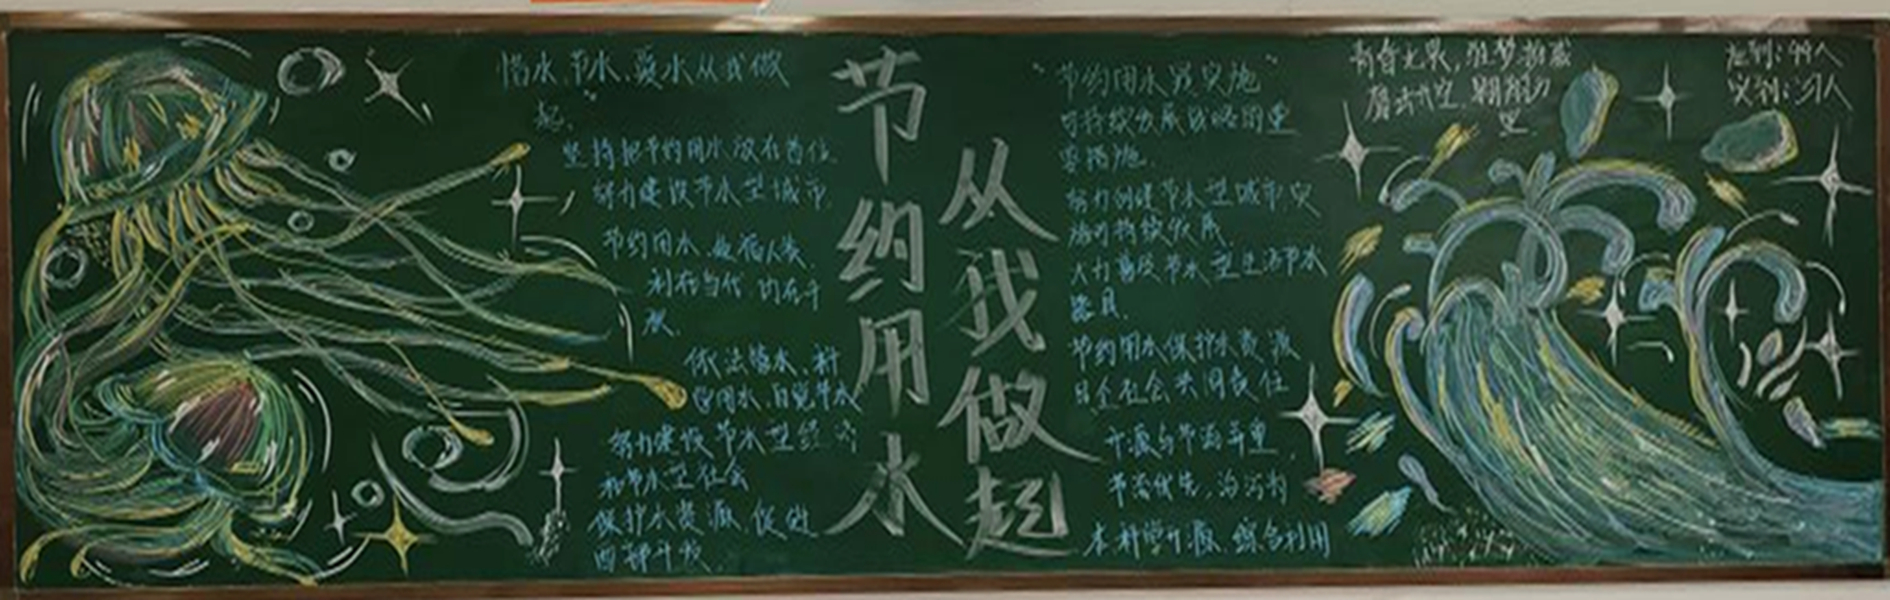 惜水、节水、爱水从我做
起。
坚持把节约用水放在首位
努力建设节水型城市
节约用水、造福人类
利在当代、功在千
秋。
依法管水、科
学用水、自觉节水
努力建设节水型经济
和节水型社会
保护水资源、促进
西部开发。
节约用水
从我做起
"节约用水是实施"
可持续发展战略的重
要措施
努力创建节水型城市实
施可持续发展
大力普及节水型生活节水
器具
节约用水保护水资源
是全社会共同责任
开源与节流并重
节流优先,治污为
本科学开源、综合利用
应到:49人